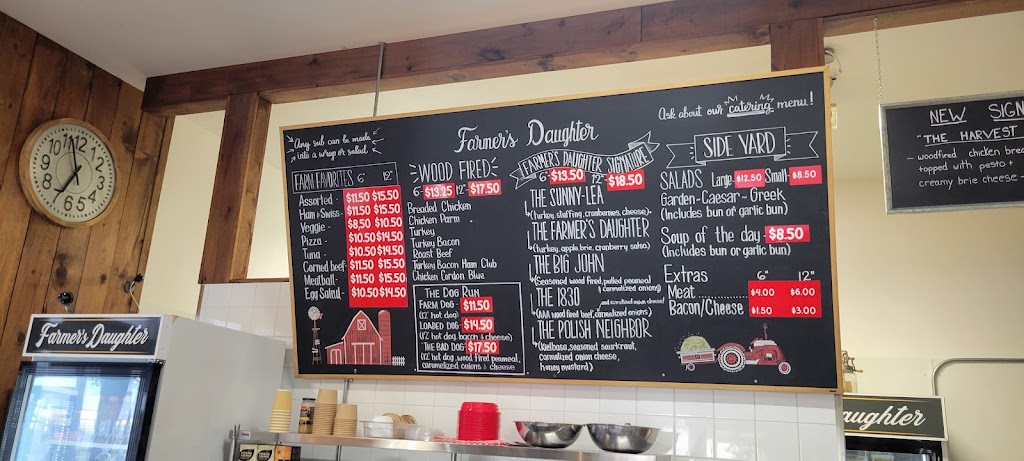 Any sub can be made
into a wrap or salad.
Farmer's Daughter
Ask about our catering menu!
FARM FAVORITES 6" 12"
Assorted - $11.50 $15.50
Ham & Swiss - $11.50 $15.50
Veggie - $8.50 $10.50
Pizza - $10.50 $14.50
Tuna - $10.50 $14.50
Corned beef - $11.50 $15.50
Meatball - $11.50 $15.50
Egg Salad - $10.50 $14.50
WOOD FIRED
6" $13.25 12" $17.50
Breaded Chicken
Chicken Parm
Turkey
Turkey Bacon
Roast Beef
Turkey Bacon Ham Club
Chicken Cordon Blue
THE DOG RUN
FARM DOG - $11.50
(12" hot dog)
LOADED DOG - $14.50
(12" hot dog, bacon & cheese)
THE BAD DOG $17.50
(12" hot dog, wood fired peameal,
caramelized onions & cheese
FARMER'S DAUGHTER SIGNATURE
6" $13.50 12" $18.50
THE SUNNY-LEA
(turkey, stuffing, cranberries, cheese)
THE FARMER'S DAUGHTER
(turkey, apple, brie, cranberry salsa)
THE BIG JOHN
(Seasoned wood fired, pulled peameal
& carmalized onions)
THE 1830
(AAA wood fired beef, carmalized onions)
THE POLISH NEIGHBOR
(Kielbasa, seasoned sauerkraut,
carmalized onion cheese,
honey mustard)
SIDE YARD
SALADS Large $12.50 Small $8.50
Garden - Caesar - Greek
(Includes bun or garlic bun)
Soup of the day - $8.50
(Includes bun or garlic bun)
Extras 6" 12"
Meat $4.00 $6.00
Bacon/Cheese $1.50 $3.00
NEW SIGN
"THE HARVEST
- woodfired chicken brea
topped with pesto +
creamy brie cheese -
12
1
2
3
4
5
6
7
8
9
10
11
Farmer's Daughter
aughter